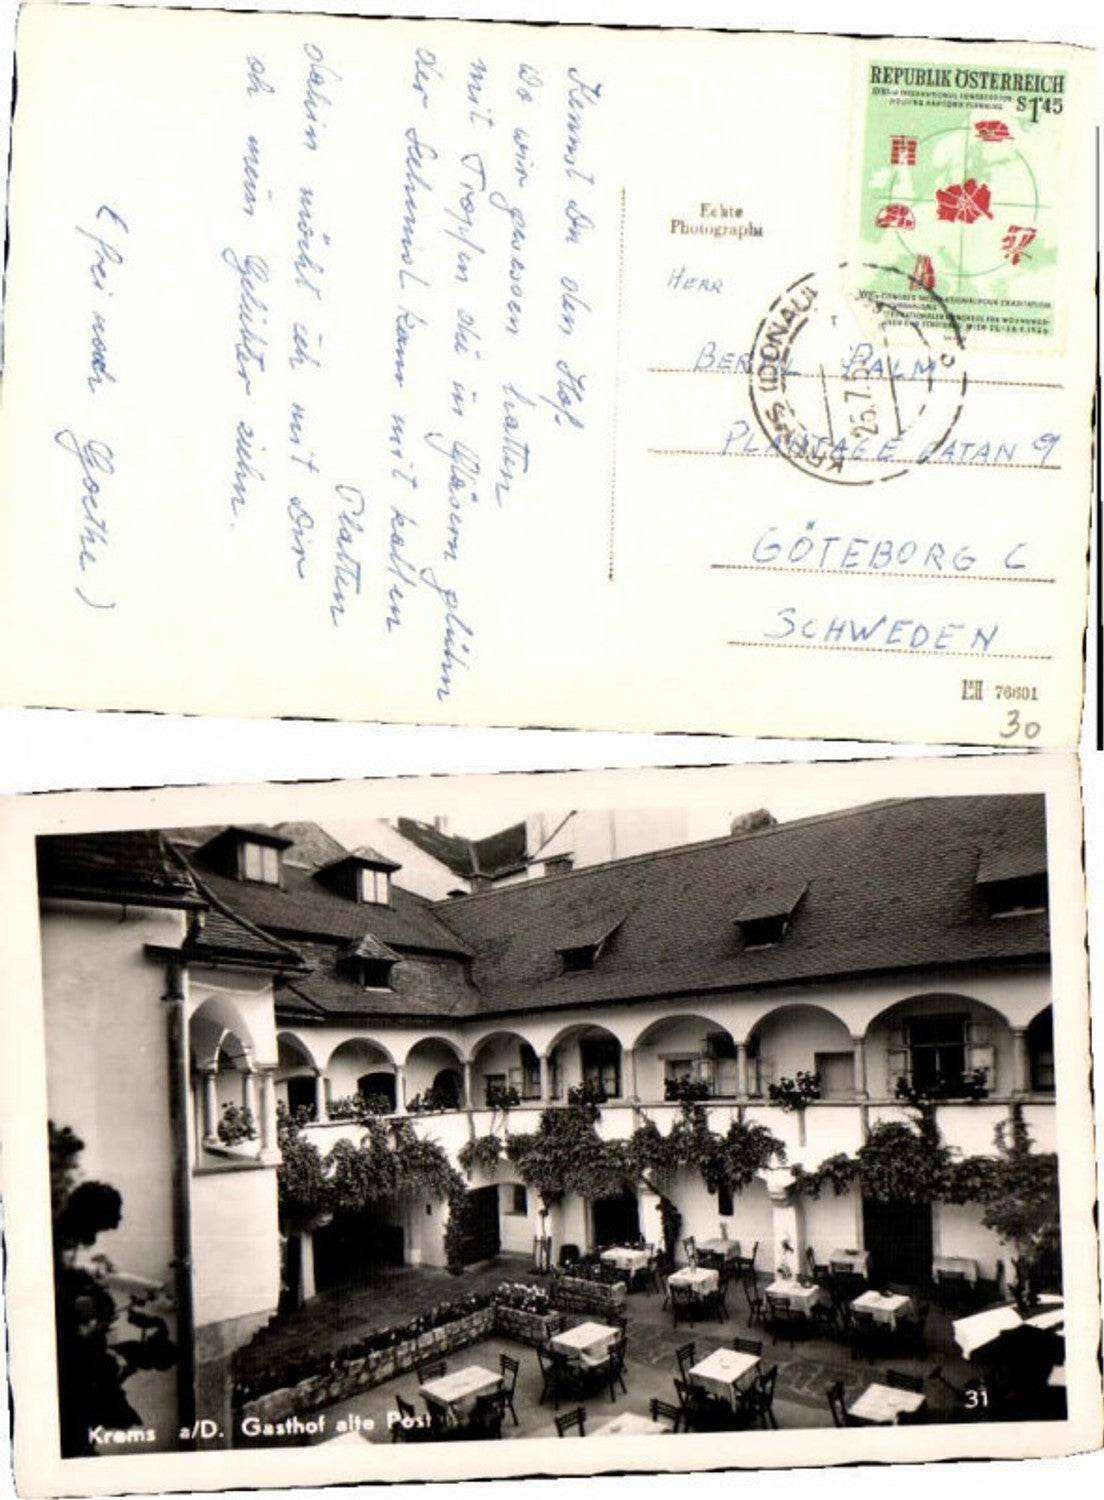 Kennst Du den Hof,
Wo wir gesessen hatten
mit Tropfen die in Gläsern glühen
der Schmied kam mit kalten
Platten
dahin möcht ich mit Dir
oh mein Geliebter ziehn.
(frei nach Goethe)
Echte
Photographie
REPUBLIK ÖSTERREICH
S 1'45
KREMS (DONAU)
HERR
BERTIL PALM
PLANTAGE GATAN 9
GÖTEBORG C
SCHWEDEN
76601
30
Krems a/D. Gasthof alte Post
31